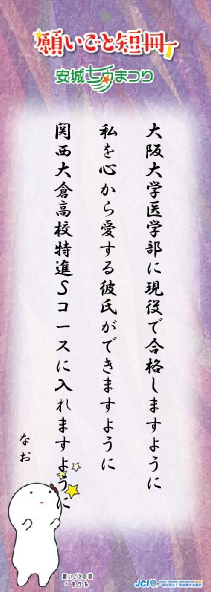 願いごと短冊
安城七夕まつり
大阪大学医学部に現役で合格しますように
私を心から愛する彼氏ができますように
関西大倉高校特進Sコースに入れますように
なお
願いごと短冊
JCI